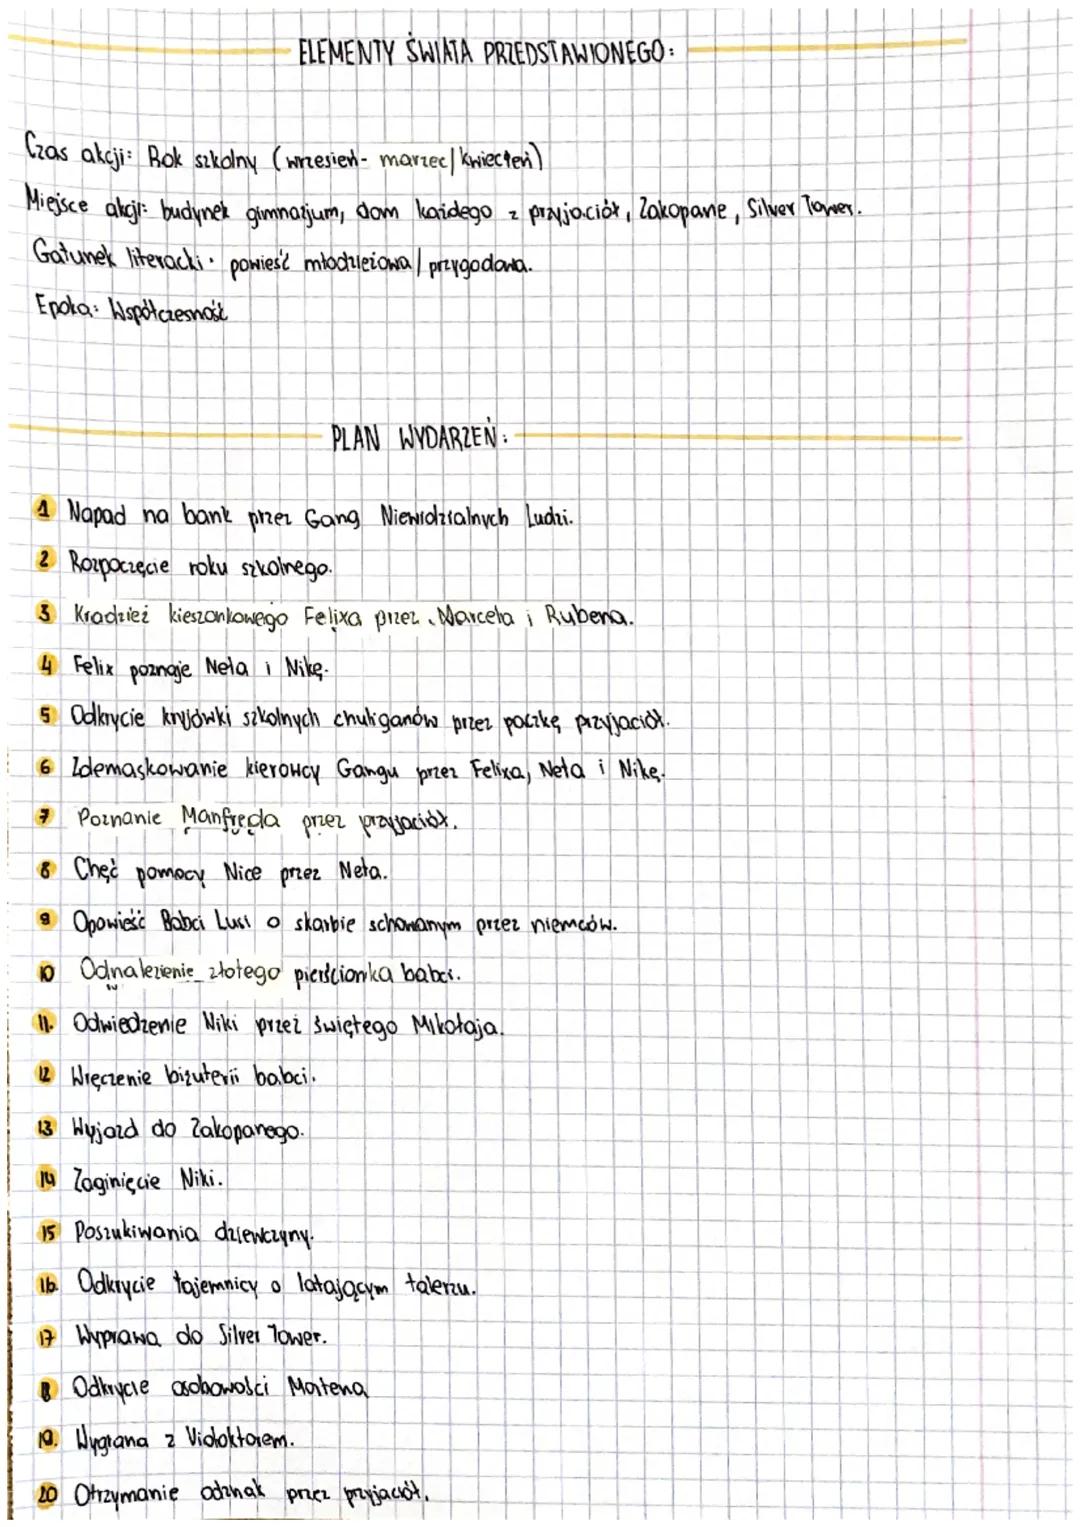 ELEMENTY ŚWIATA PRZEDSTAWIONEGO:
Czas akcji: Rok szkolny (wrzesień- marzec/kwiecień)
Miejsce akcji: budynek gimnazjum, dom każdego z przyjaciół, Zakopane, Silver Tower.
Gatunek literacki: powieść młodzieżowa/przygodowa.
Epoka: Współczesność
PLAN WYDARZEŃ:
1 Napad na bank przez Gang Niewidzialnych Ludzi.
2 Rozpoczęcie roku szkolnego.
3 Kradzież kieszonkowego Felixa przez Marcela i Rubena.
4 Felix poznaje Neta i Nikę.
5 Odkrycie kryjówki szkolnych chuliganów przez paczkę przyjaciół.
6 Zdemaskowanie kierowcy Gangu przez Felixa, Neta i Nikę.
7 Poznanie Manfreda przez przyjaciół.
8 Chęć pomocy Nice przez Neta.
9 Opowieść Babci Lusi o skarbie schowanym przez niemców.
10 Odnalezienie złotego pierścionka babci.
11. Odwiedzenie Niki przez świętego Mikołaja.
12 Wręczenie biżuterii babci.
13 Wyjazd do Zakopanego.
14 Zaginięcie Niki.
15 Poszukiwania dziewczyny.
16 Odkrycie tajemnicy o latającym talerzu.
17 Wyprawa do Silver Tower.
18 Odkrycie osobowości Mortena
19. Wygrana z Vidoktorem.
20 Otrzymanie odznak przez przyjaciół.